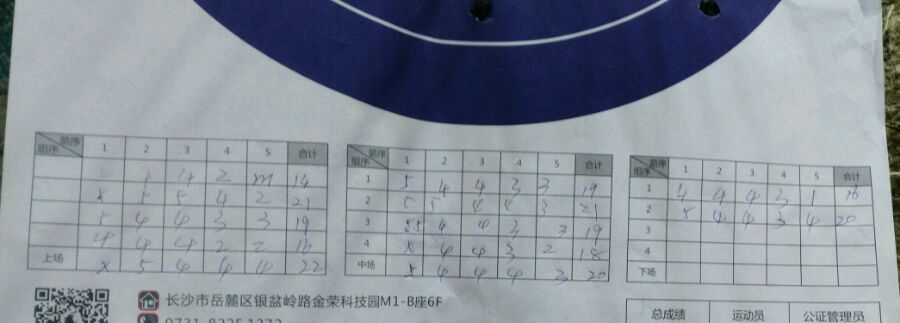 箭序 组序 1 2 3 4 5 合计
4 2 m 14
x 5 5 4 2 21
5 4 4 3 3 19
4 4 4 2 2 16
上场 x 5 4 4 4 22
箭序 组序 1 2 3 4 5 合计
1 5 4 4 3 3 19
2 5 5 4 4 3 21
3 4 4 3 3 19
4 x 4 4 3 2 18
中场 x 4 4 4 3 20
箭序 组序 1 2 3 4 5 合计
1 4 4 4 3 1 16
2 5 4 4 3 4 20
3
4
下场
长沙市岳麓区银盆岭路金荣科技园M1-B座6F
总成绩 运动员 公证管理员